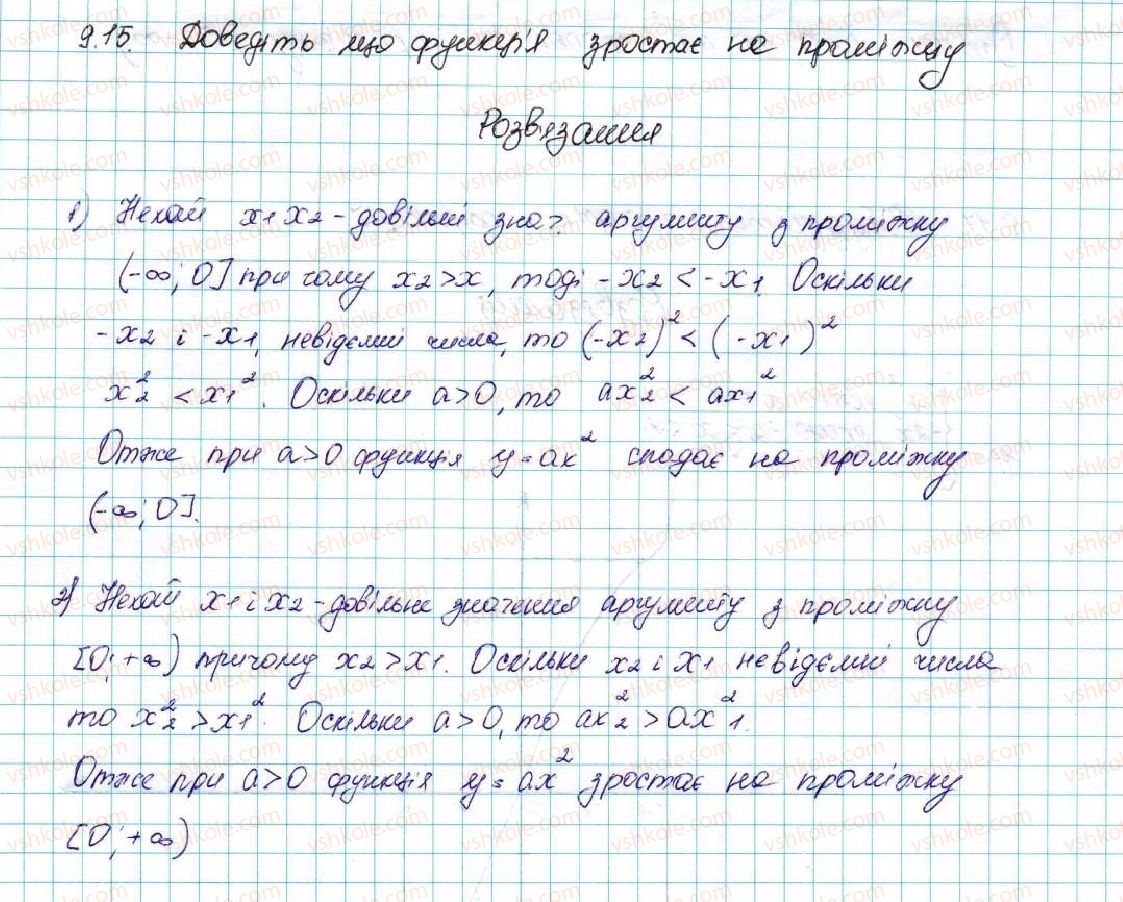 9.15. Доведіть що функція зростає на проміжку
Розв'язання
1) Нехай x1 x2 - довільні знач. аргументу з проміжку
(-∞; 0] при чому x2 > x, тоді -x2 < -x1. Оскільки
-x2 і -x1, невідємні числа, то (-x2)² < (-x1)²
x2² < x1². Оскільки a>0, то ax2² < ax1²
Отже при a>0 функція y=ax² спадає на проміжку
(-∞; 0].
2) Нехай x1 і x2 - довільне значення аргументу з проміжку
[0; +∞) причому x2 > x1. Оскільки x2 і x1 невідємні числа
то x2² > x1². Оскільки a>0, то ax2² > ax1².
Отже при a>0 функція y=ax² зростає на проміжку
[0; +∞)